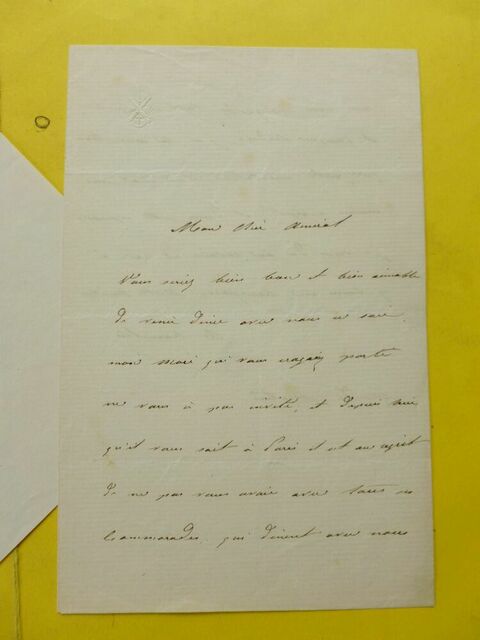 Mon cher Amiral
Vous seriez bien bon et bien aimable
de venir diner avec nous ce soir,
mon Mari qui vous croyait
ne vous à pas invité, et depuis
qu'il vous sait à Paris il est au regret
de ne pas vous avoir avec tous ses
Cammarades, qui dinent avec nous